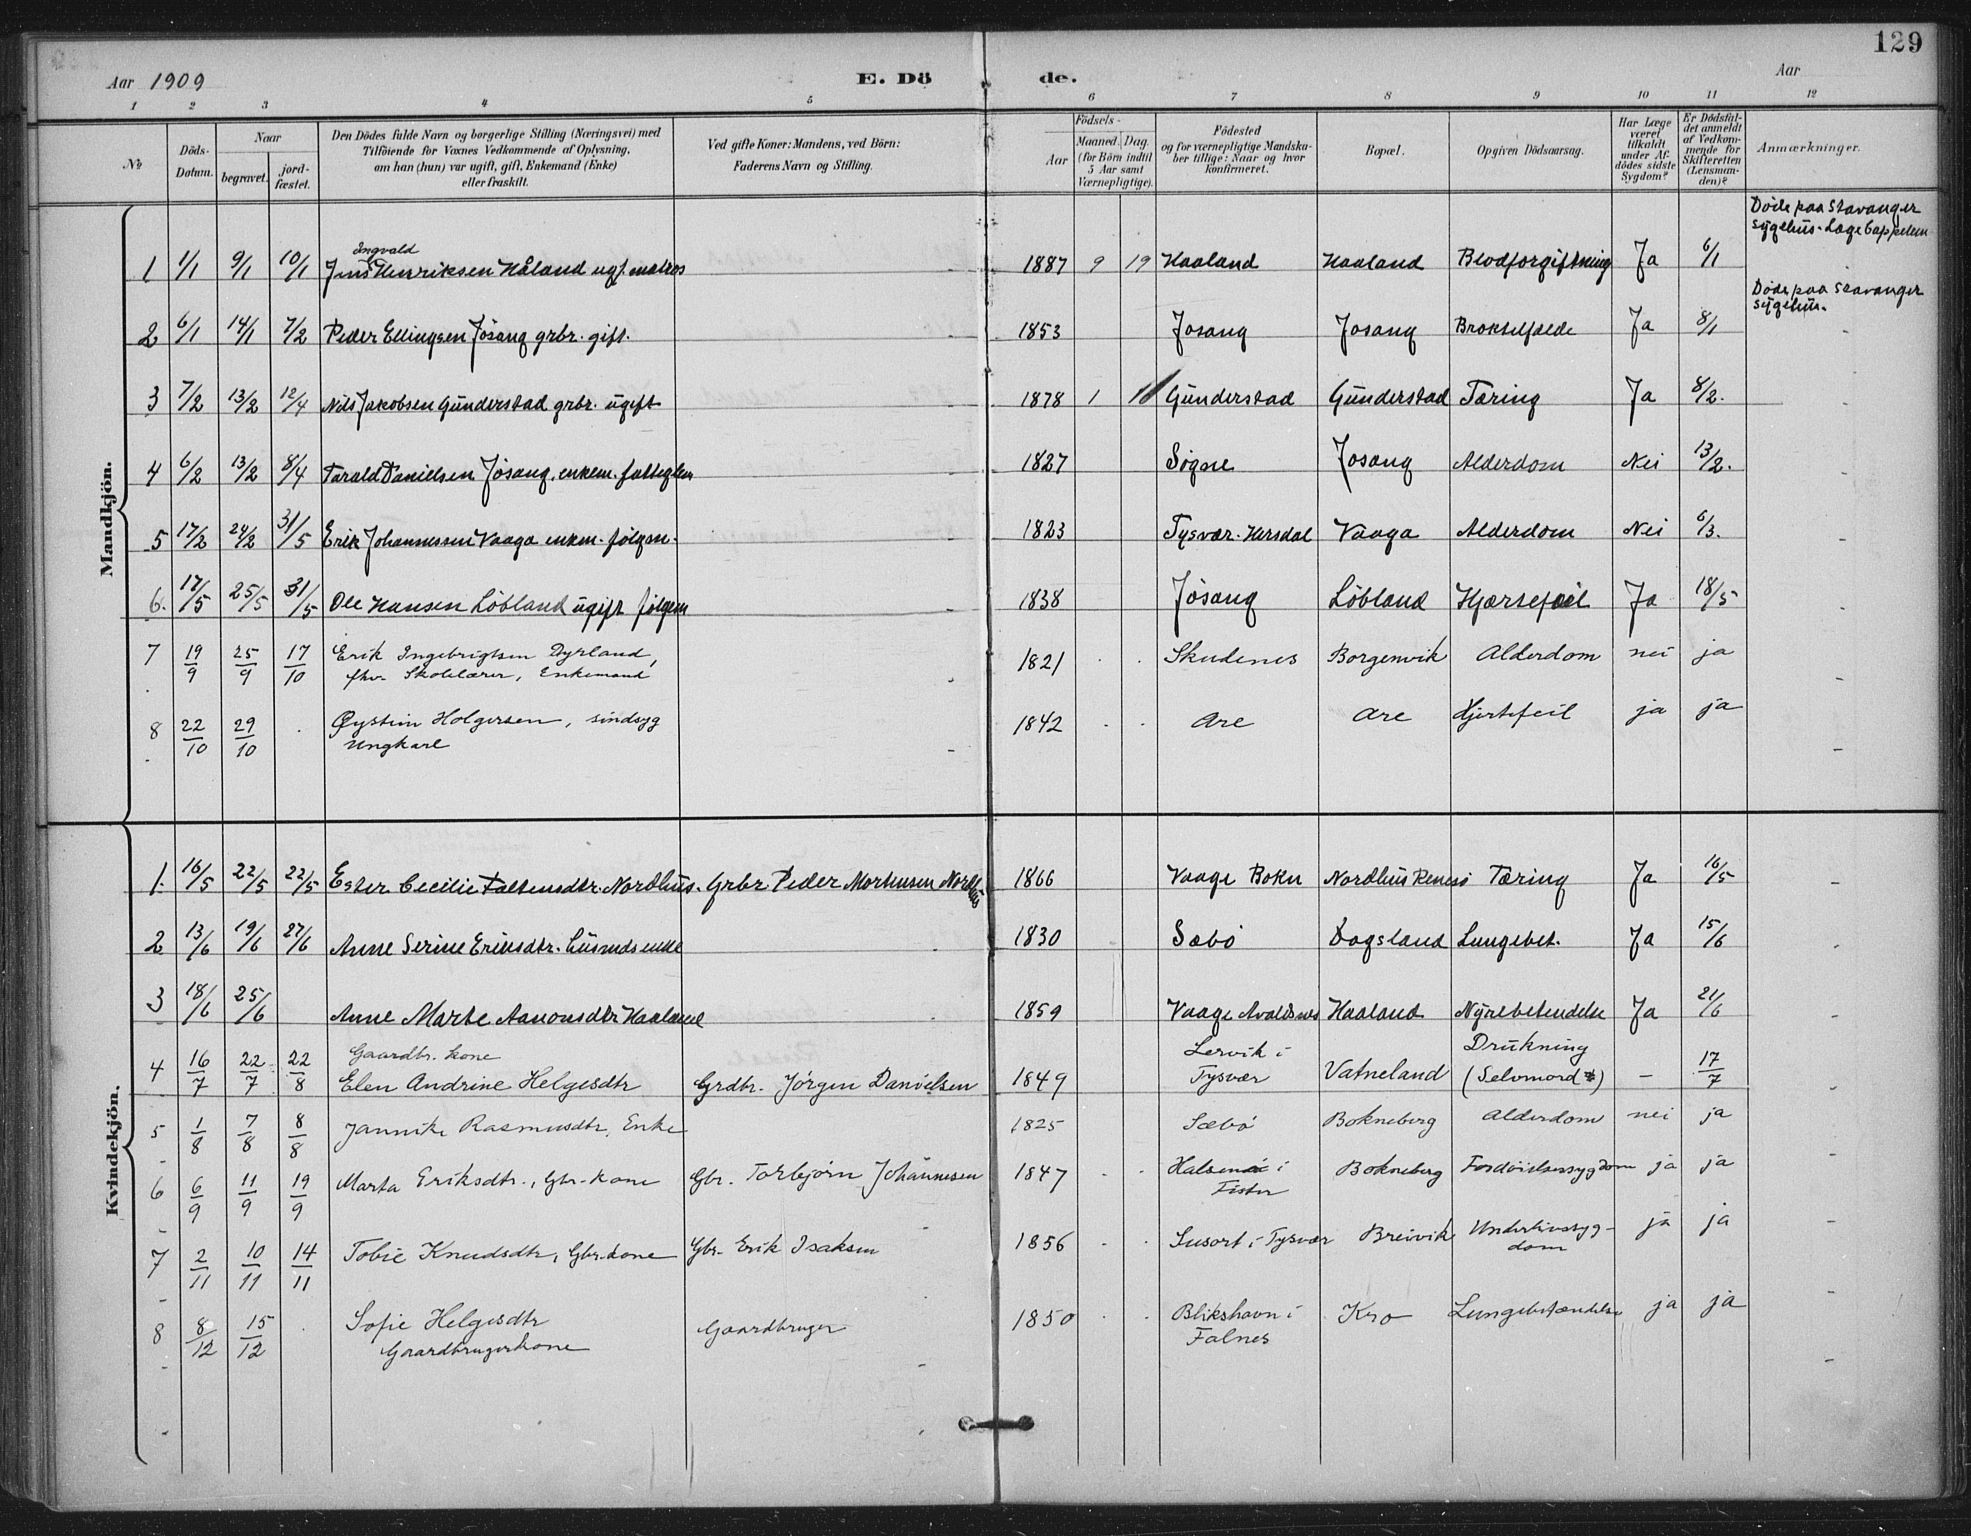 129
Aar 1909 E. Dö de. Aar
1 2 3 4 5 6 7 8 9 10 11 12
No Döds-Datum. Naar begravet. jord-fæstet. Den Dödes fulde Navn og borgerlige Stilling (Næringsvei) med Tilföiende for Voxnes Vedkommende af Oplysning, om han (hun) var ugift, gift, Enkemand (Enke) eller fraskilt. Ved gifte Koner: Mandens, ved Börn: Faderens Navn og Stilling. Födsels- Aar Maaned. Dag. (for Börn indtil 5 Aar samt Værnepligtige). Födested og for værnepligtige Mandskaber tillige: Naar og hvor konfirmeret. Bopæl. Opgiven Dödsaarsag. Har Læge været tilkaldt under Afdödes sidste Sygdom? Er Dödsfaldet anmeldt af Vedkommende for Skifteretten (Lensmanden)? Anmærkninger.
Mandkjön.
Döde paa Stavanger
sygehus. Læge Cappelen
Ingvald
1 1/1 9/1 10/1 Jens Henriksen Håland ugf. matros 1887 9 19 Haaland Haaland Blodforgiftning Ja 6/1
Döde paa Stavanger
sygehus.
2 6/1 14/1 7/2 Peder Ellingsen Jösang grbr. gift. 1853 Josang Josang Brokselfælde Ja 8/1
3 7/2 13/2 12/4 Nils Jakobsen Gunderstad grbr. ugift 1878 1 Gunderstad Gunderstad Tæring Ja 8/2.
4 6/2 13/2 8/4 Tarald Danielsen Jösang, enkem. fattiglem 1827 Sogne Josang Alderdom Nei 13/2.
5 17/2 24/2 31/5 Erik Johannessen Vaaga enkem. følgm. 1823 Tysvær. Hersdal Vaaga Alderdom Nei 6/3.
6. 17/5 25/5 31/5 Ole Hansen Löbland ugift følgem 1838 Jösang Löbland Hjærtefeil Ja 18/5
7 19/9 25/9 17/10 Erik Ingebrigtsen Dyrland, 1821 Skudenes Borgenvik Alderdom nei ja
fhv. Skolelærer, Enkemand
8 22/10 29/10 Øystein Holgersen, sindsyg 1842 Are Are Hjertefeil ja ja
Ungkarl
Kvindekjön.
1. 16/5 22/5 22/5 Ester Cecilie Faltensdtr. Nordhus. Grbr Peder Mortensen Nordhus 1866 Vaage Bokn Nordhus Rennesö Tæring Ja 16/5
2 13/6 19/6 27/6 Anne Serine Eriksdtr. Husmdsenke 1830 Sæbö Dagsland Lungebet. Ja 15/6
3 18/6 25/6 Anne Marte Aanonsdtr Haaland 1859 Vaage Avaldsnes Haaland Nyrebetendelse Ja 21/6
Gaardbr. kone Lervik i Drukning
4 16/7 22/7 22/8 Elen Andrine Helgesdtr Grdbr. Jörgen Danielsen 1849 Tysvær Vatneland (Selvmord) – 17/7
5 1/8 7/8 8/8 Jannike Rasmusdtr, Enke 1825 Sæbö Bokneberg Alderdom nei ja
6 6/9 11/9 19/9 Marta Eriksdtr., Gbr.-kone Gbr. Torbjörn Johannesen 1847 Halsenø i Bokneberg Fordøielsessygdom ja ja
Fister
7 2/11 10/11 14/11 Tobie Knudsdtr, Gbr.kone Gbr. Erik Isaksen 1856 Susort i Tysvær Breivik Underlivssyg- ja ja
dom
8 8/12 15/12 Sofie Helgesdtr Gaardbruger 1850 Blikshavn i Kro Lungebetændelse ja ja
Gaardbrugerkone Falnes